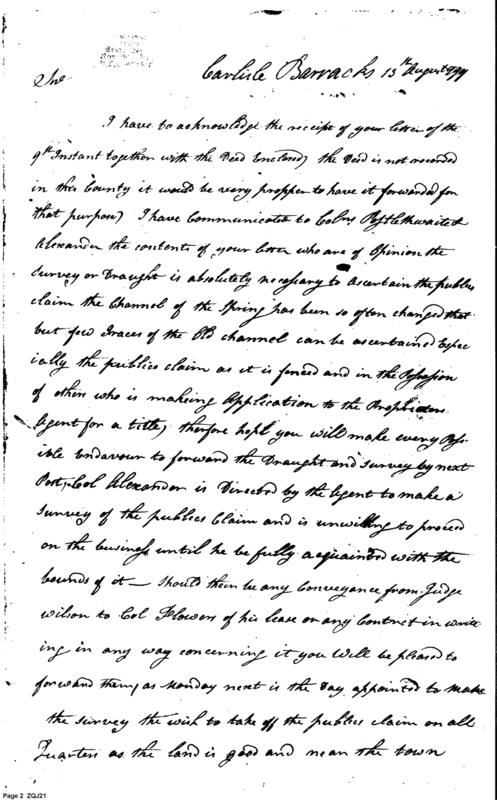 Carlisle Barracks 13th August 1799
Sir
I have to acknowledge the receipt of your letter of the
9th Instant together with the Deed Enclosed, the Deed is not recorded
in this County it would be very propper to have it forwarded for
that purpose, I have Communicated to Colns Postlethwaite &
Alexander the contents of your letter who are of Opinion the
Survey or Draught is absolutely necessary to ascertain the publics
claim the Channel of the Spring has been so often changed that
but few Traces of the Old channel can be ascertained Espec
ially the publics claim as it is fenced and in the Possession
of others who is makeing Application to the Proprietors
Agent for a title, therefore hope you will make every Poss
ible Endavour to forward the Draught and Survey by next
Post, Col Alexander is Directed by the Agent to make a
Survey of the publics Claim and is unwilling to proceed
on the business until he be fully acquainted with the
bounds of it — Should there be any Conveyance from Judge
Wilson to Col Flowers of his lease or any Contrct in write
ing in any way concerning it you will be pleased to
forward them, as Monday next is the Day appointed to make
the survey the wish to take off the publics claim on all
Quarters as the land is good and near the town
Page 2 ZQJ21